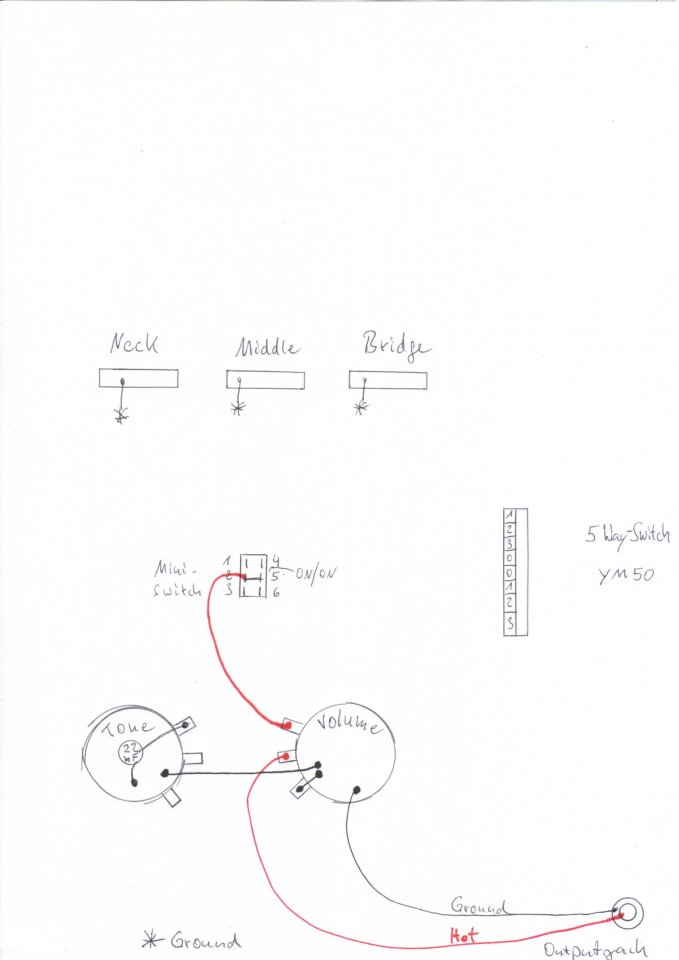 Neck
Middle
Bridge
1
2
3
0
0
1
2
3
5 Way-Switch
YM50
Mini-
Switch
1
2
3
4
5
6
ON/ON
Tone
22
nF
Volume
Ground
Hot
Ground
Outputjack